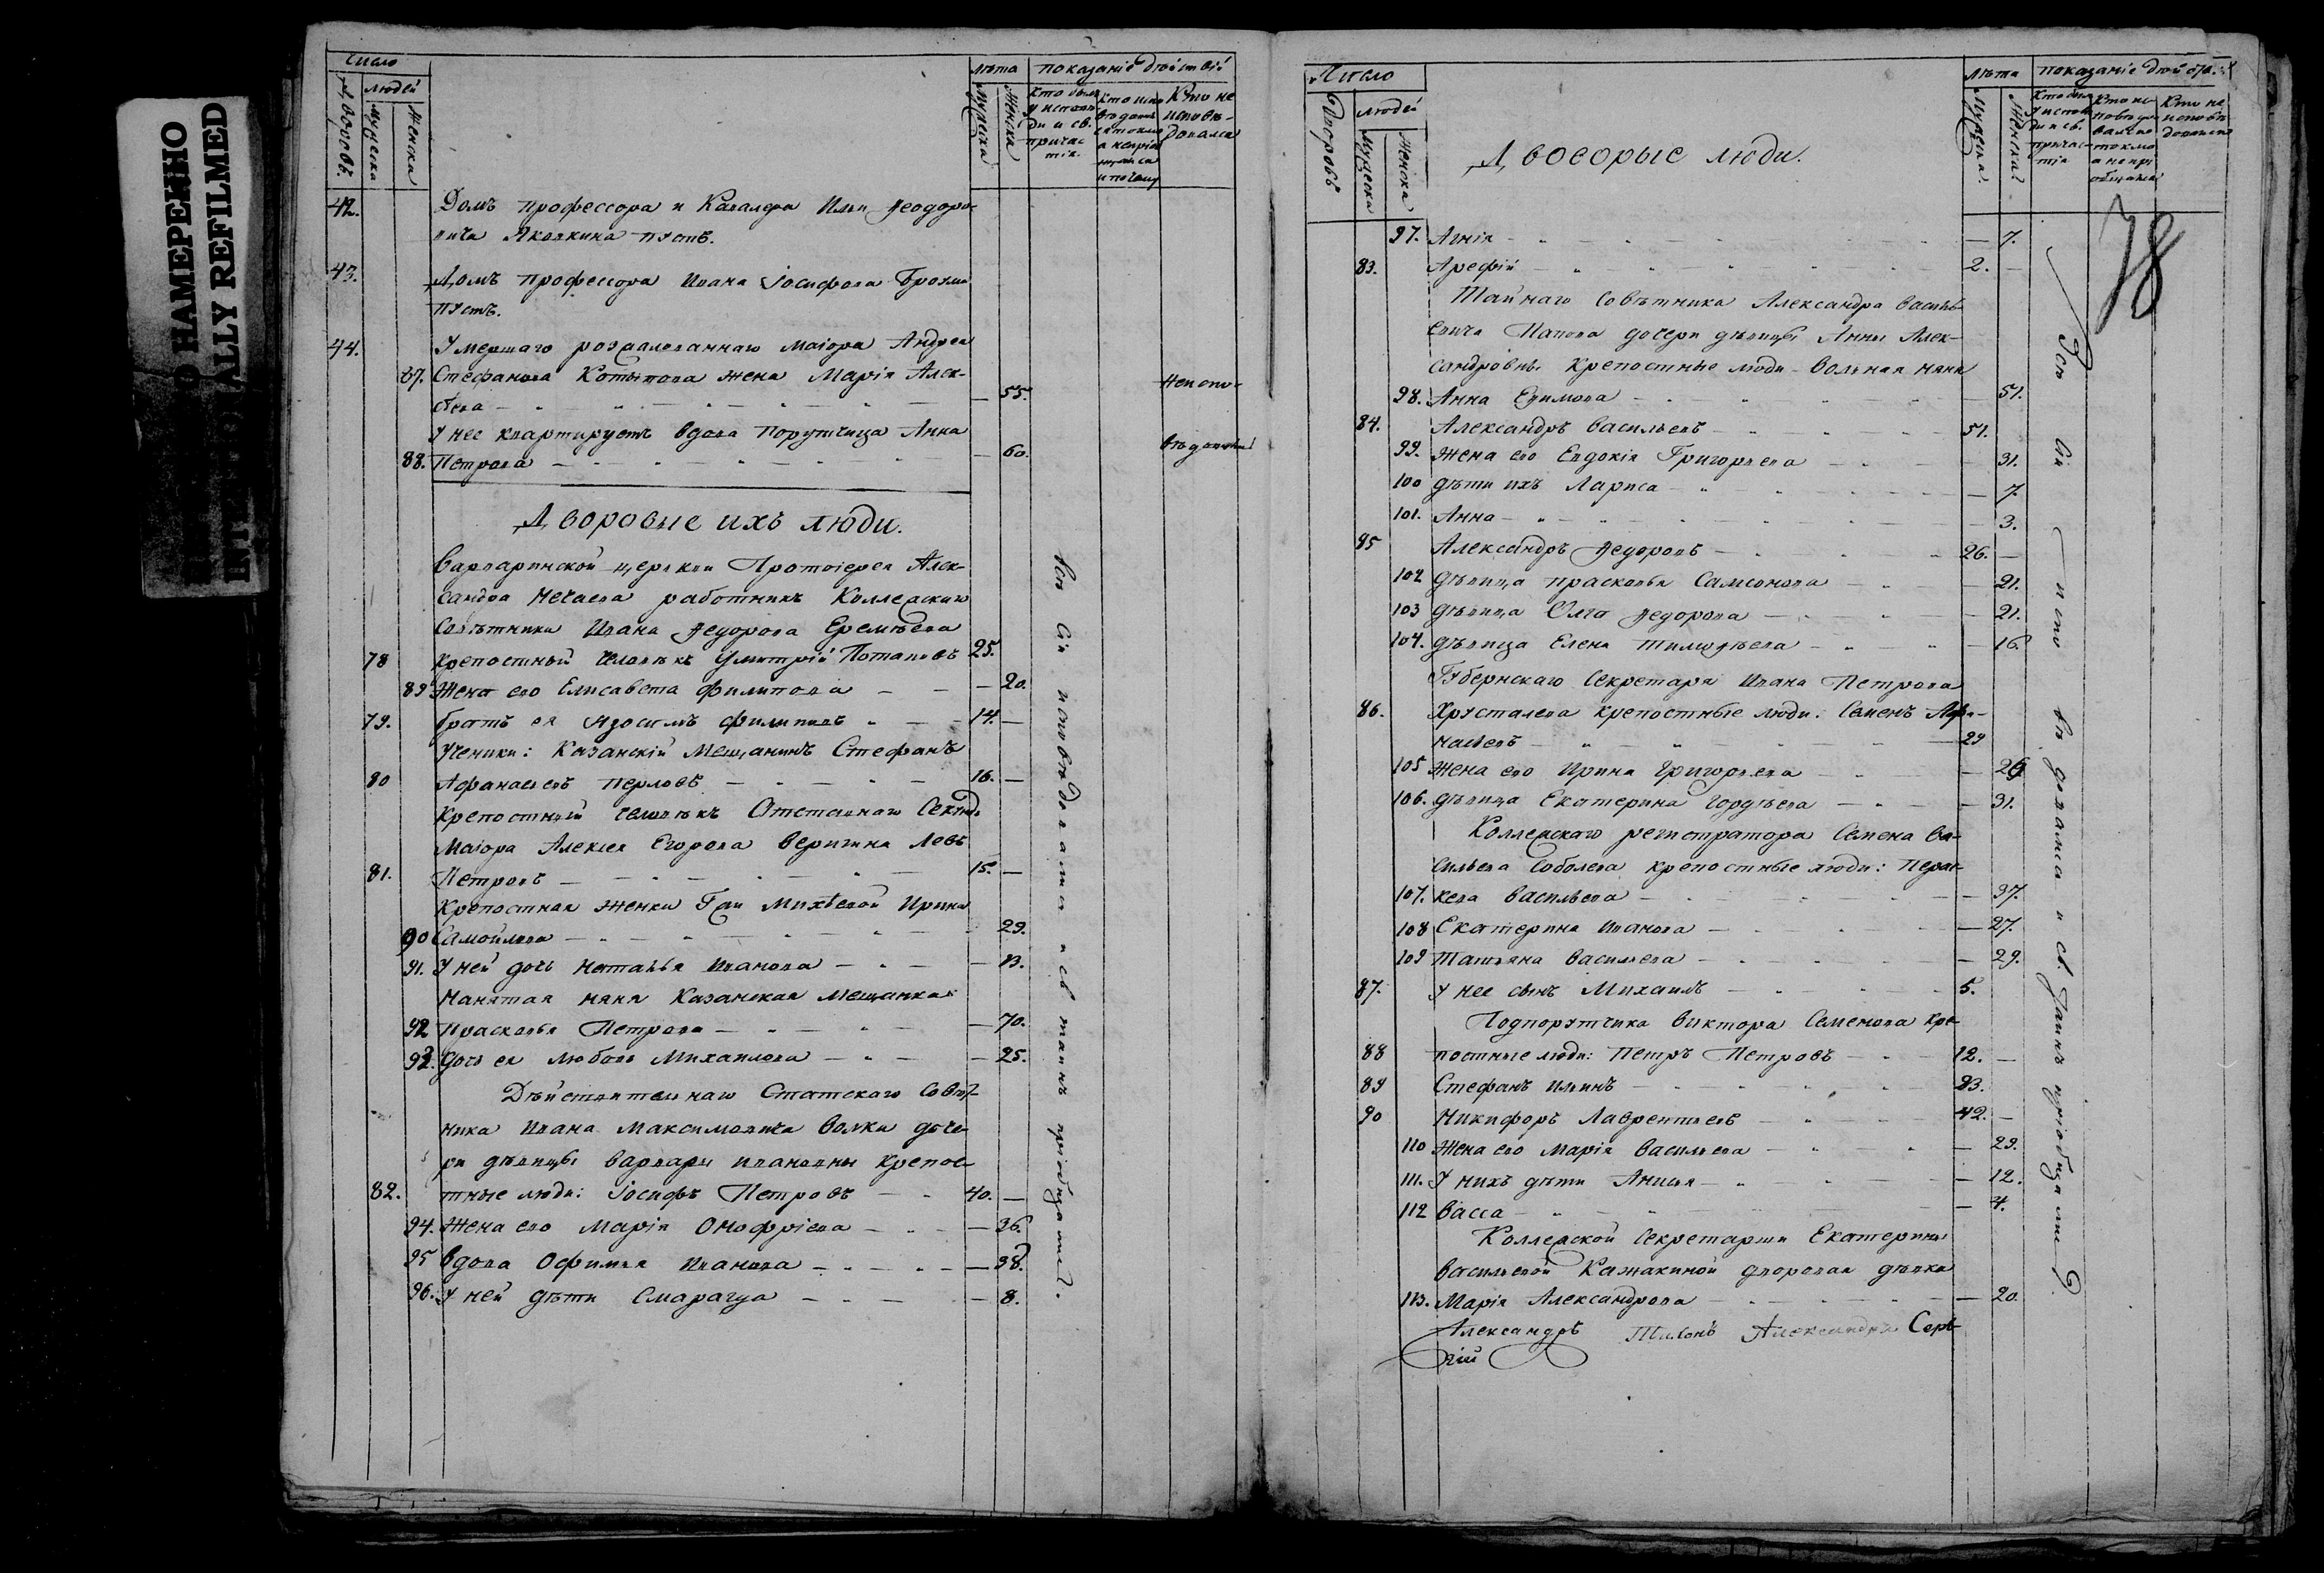 НАМЕРЕННО
INTENTIONALLY REFILMED
Число
Дворовъ.
людей
мужеска
Женска
лѣта
Мужеска
Женска
показаніе дѣйствій
Кто не исповѣдовался
42. Домъ профессора и Кавалера Ильи Ѳеодоро-
вича Яковкина пустъ.
43. Домъ профессора Ивана Іосифова
пустъ.
44. Умершаго Маіора Андрея
87. Стефанова жена Марія Алек-
сѣева 55. Неиспо-
У нее квартируетъ вдова Порутчица Анна
88. Петрова 60. вѣдовались
Дворовые ихъ люди.
Варваринской церкви Протоіерея Алек-
сандра Нечаева работникъ Коллежскаго
Совѣтника Ивана Ѳедорова Еремѣева
78 крепостный человѣкъ Дмитрій Потаповъ 25.
89 Жена его Елисавета Филипова 20.
79. братъ ея Изосимъ Филиповъ 14.
Ученики: Казанскій Мещанинъ Стефанъ
80 Афанасьевъ Перловъ 16.
Крепостный человѣкъ Отставнаго Секунд-
Маіора Алексея Егорова Веригина Левъ
81. Петровъ 15.
Крепостная женка Гжи Михѣевой Ирина
90 Самойлова 29.
91. У ней дочь Наталья Иванова 13.
Нанятая няня Казанская Мещанка
92 Прасковья Петрова 70.
93. Дочь ея Любовь Михаилова 25.
Дѣйствительнаго Статскаго Совѣт-
ника Ивана Максимовича Волки доче-
ри дѣвицы Варвары Ивановны крепос-
82. тные люди: Іосифъ Петровъ 40.
94. Жена его Марія Онофріева 36.
95 Вдова Офимья Иванова 38.
96. У ней дѣти Смарагда 8.
Всѣ сіи исповѣдовались и св. таинъ пріобщались.
Число
Дворовъ
людей
Мужеска
Женска
Дворовые люди.
лѣта
Мужеска.
Женска.
показаніе дѣйств.
78
97. Агнія 7.
83. Арефій 2.
Тайнаго Совѣтника Александра Василь-
евича Попова дочери дѣвицы Анны Алек-
сандровны крепостные люди вольная няня
98. Анна Ефимова 51.
84. Александръ Васильевъ 51.
99. Жена его Евдокія Григорьева 31.
100 дѣти ихъ Лариса 7.
101. Анна 3.
85 Александръ Ѳедоровъ 26.
102 дѣвица Прасковья Самсонова 21.
103 дѣвица Олга Ѳедорова 21.
104. дѣвица Елена Тимоѳѣева 16.
Губернскаго Секретаря Ивана Петрова
86. Хрусталева крепостные люди: Семенъ Афа-
насьевъ 29
105 Жена его Ирина Григорьева 26
106. дѣвица Екатерина Гордѣева 31.
Коллежскаго регистратора Семена Ва-
сильева Соболева крепостные люди: Парас-
107. кева Васильева 37.
108 Екатерина Иванова 27.
109 Татьяна Васильева 29.
87. У нее сынъ Михаилъ 5.
Подпорутчика Виктора Семенова кре-
88 постные люди: Петръ Петровъ 12.
89 Стефанъ Ильинъ 23.
90 Никифоръ Лаврентьевъ 42.
110 Жена его Марія Васильева 29.
111. У нихъ дѣти Анисья 12.
112 Васса 4.
Коллежской Секретарши Екатерины
Васильевой Кажакиной дворовая дѣвка
113. Марія Александрова 20.
Александръ Тихонъ Александра Сер-
гій
Всѣ сіи исповѣдовались и св. Таинъ пріобщались